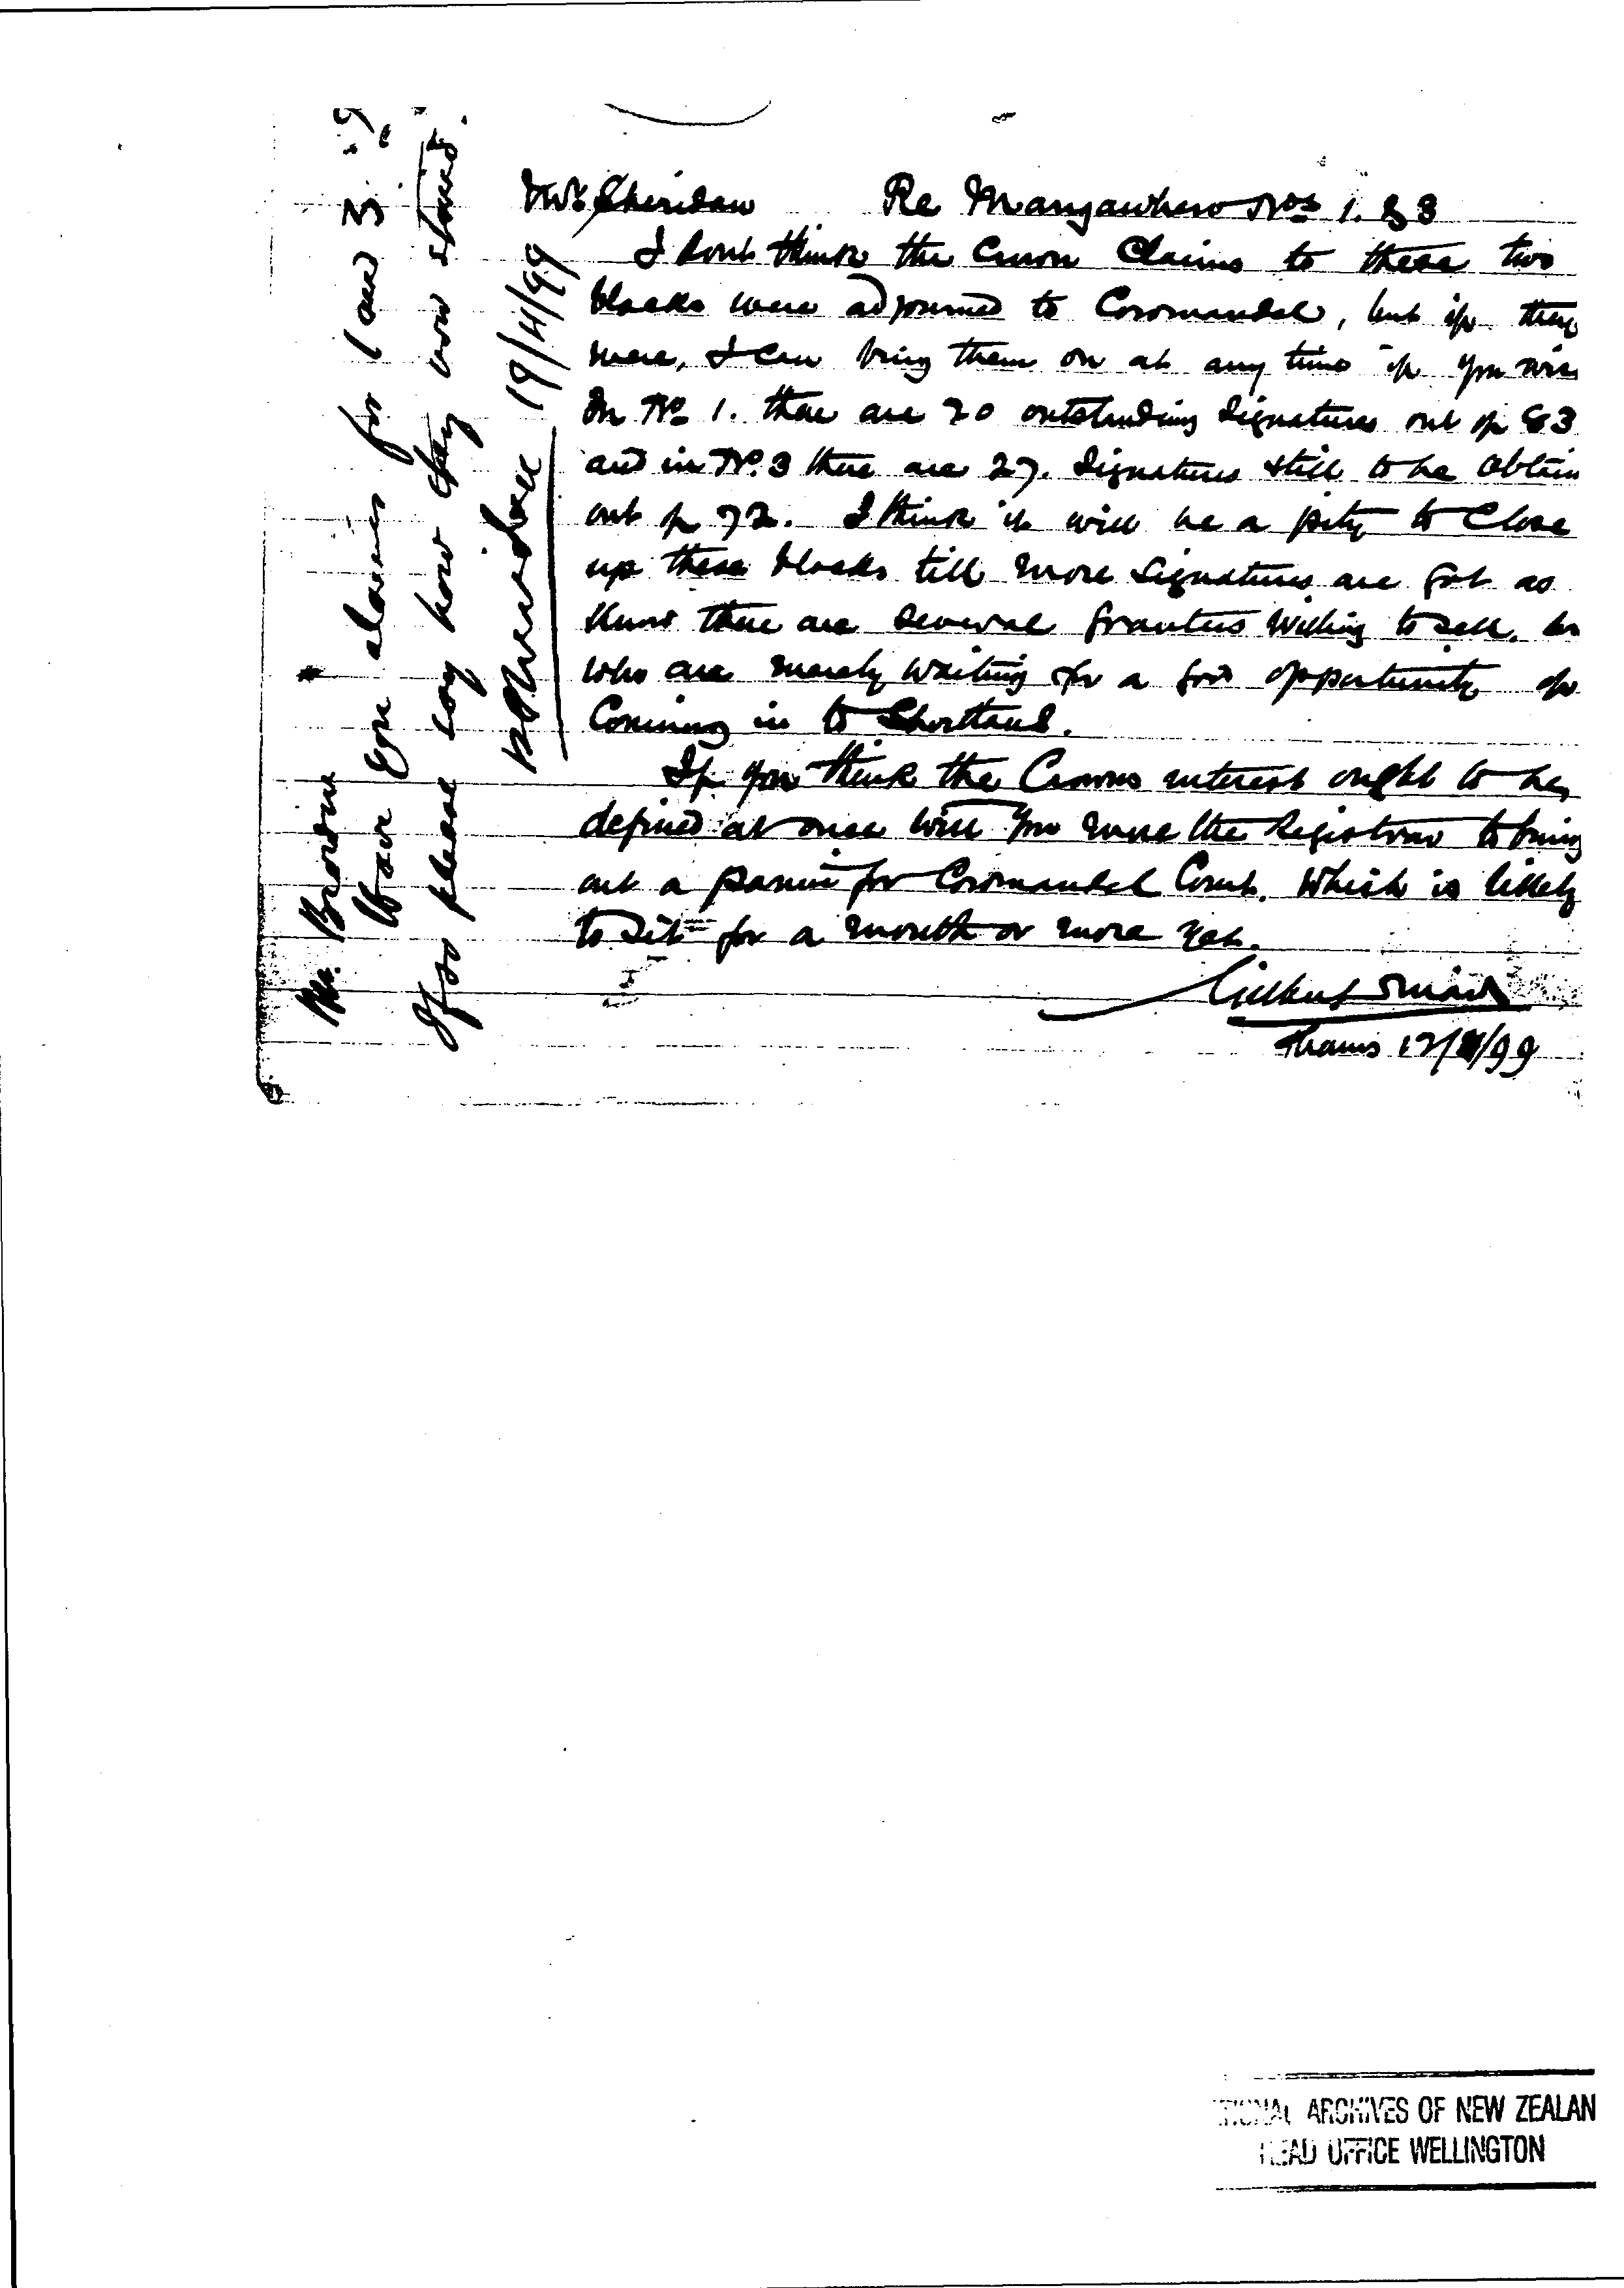 Mr Sheridan Re Mangawhero Nos 1. & 3
I dont think the Crown Claims to these two
blocks were adjourned to Coromandel, but if they
were, I can bring them on at any time if you
In No 1. there are 20 outstanding Signatures out of 63
and in No. 3 there are 27. Signatures still to be Obtain
out of 72. I think it will be a pity to Close
up these blocks till more Signatures are got as
there are several grantees willing to sell.
who are merely waiting for a good opportunity of
Coming in to Shortland.
If you think the Crowns interest ought to be
defined at once will you wire the Registrar to bring
out a panui for Coromandel Court. Which is likely
to Sit for a month or more yet.
Gilbert Mair
Thames 12/4/99
Mr. Browne
Have you claims for 1 and 3
If so please say how they now stand.
P Sheridan 19/4/99
ARCHIVES OF NEW ZEALAN
HEAD OFFICE WELLINGTON